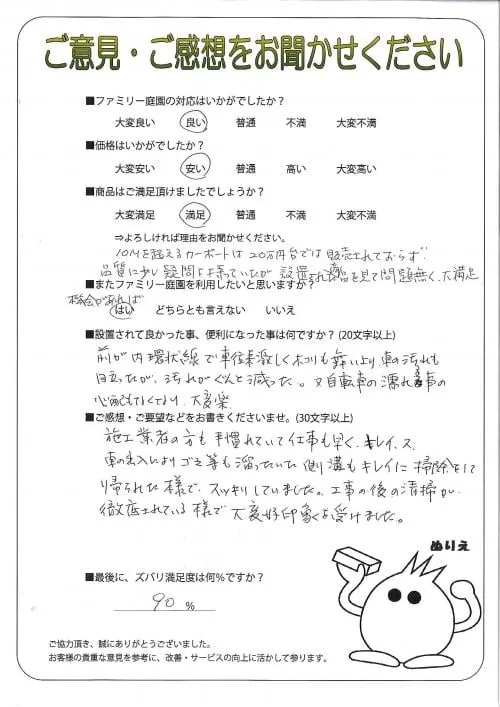 ご意見・ご感想をお聞かせください
■ファミリー庭園の対応はいかがでしたか？
大変良い 良い 普通 不満 大変不満
■価格はいかがでしたか？
大変安い 安い 普通 高い 大変高い
■商品はご満足頂けましたでしょうか？
大変満足 満足 普通 不満 大変不満
⇒よろしければ理由をお聞かせください。
10Mを超えるカーポートは20万円台では販売されておらず
品質に少し疑問は持っていたが設置された商品を見て問題無く、大満足
■またファミリー庭園を利用したいと思いますか？
機会があれば
はい どちらとも言えない いいえ
■設置されて良かった事、便利になった事は何ですか？(20文字以上)
前が内環状線で車往来激しくホコリも舞いより車の汚れも
目立ったが、汚れがぐんと減った。又自転車の濡れる事の
心配もなくなり、大変楽
■ご感想・ご要望などをお書きくださいませ。(30文字以上)
施工業者の方も手慣れていて仕事も早く、キレイ、又
車の出入によりゴミ等も溜っていた側溝もキレイに掃除をして
帰られた様で、スッキリしていました。工事の後の清掃が
徹底されている様で大変好印象を受けました。
ぬりえ
■最後に、ズバリ満足度は何%ですか？
90 %
ご協力頂き、誠にありがとうございました。
お客様の貴重な意見を参考に、改善・サービスの向上に活かして参ります。